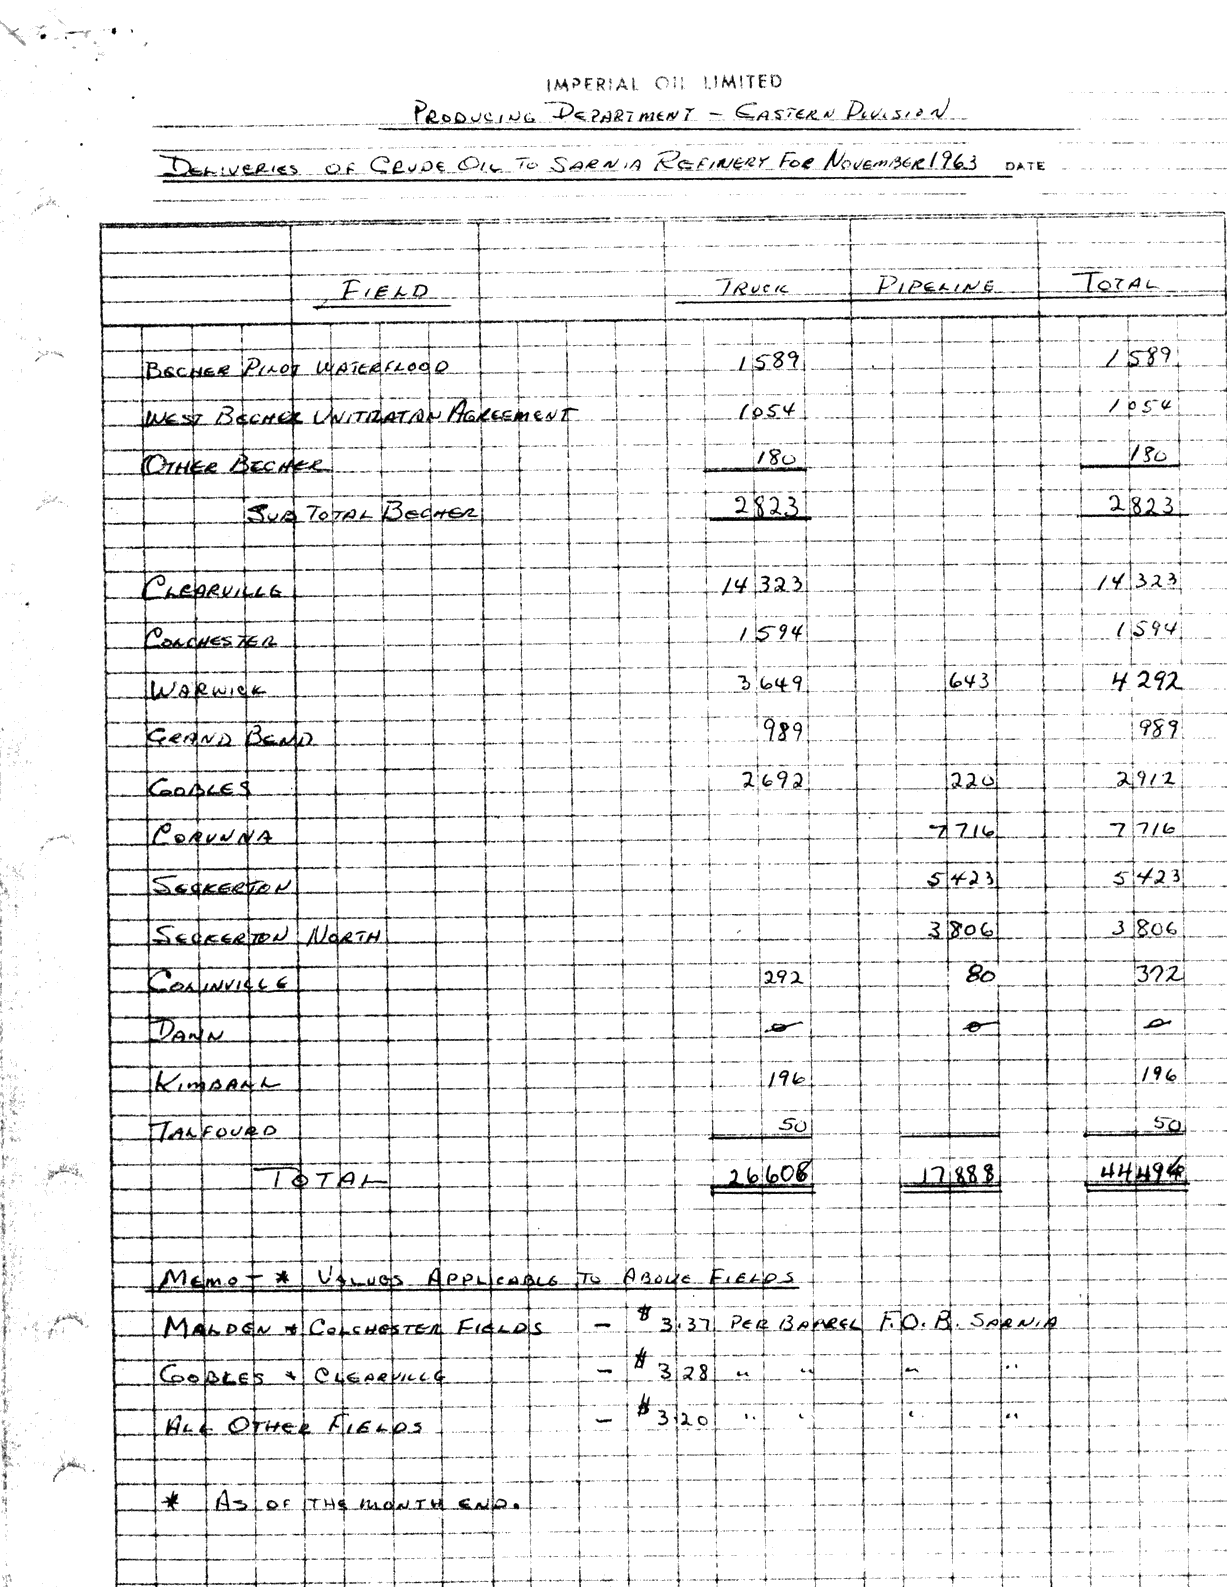 IMPERIAL OIL LIMITED
PRODUCING DEPARTMENT - EASTERN DIVISION
DELIVERIES OF CRUDE OIL TO SARNIA REFINERY FOR NOVEMBER 1963 DATE
FIELD TRUCK PIPELINE TOTAL
BECHER PILOT WATERFLOOD 1589 1589
WEST BECHER UNITIZATION AGREEMENT 1054 1054
OTHER BECHER 180 180
SUB TOTAL BECHER 2823 2823
CLEARVILLE 14323 14323
COLCHESTER 1594 1594
WARWICK 3649 643 4292
GRAND BEND 989 989
GOBLES 2692 220 2912
CORUNNA 7716 7716
SECKERTON 5423 5423
SECKERTON NORTH 3806 3806
COLINVILLE 292 80 372
DAWN 0 0 0
KIMBALL 196 196
TALFOURD 50 50
TOTAL 26608 17888 44496
MEMO - * VALUES APPLICABLE TO ABOVE FIELDS
MALDEN & COLCHESTER FIELDS - $3.37 PER BARREL F.O.B. SARNIA
GOBLES & CLEARVILLE - $3.28 " " " "
ALL OTHER FIELDS - $3.20 " " " "
* AS OF THE MONTH END.